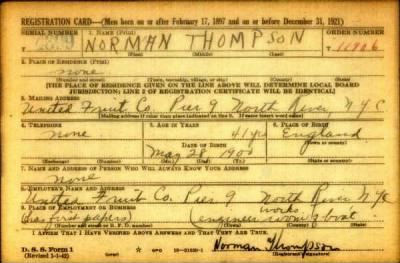 REGISTRATION CARD—(Men born on or after February 17, 1897 and on or before December 31, 1921)
SERIAL NUMBER 1. NAME (Print) ORDER NUMBER
NORMAN THOMPSON
2. PLACE OF RESIDENCE (Print)
none
(Number and street) (Town, township, village, or city) (County) (State)
[THE PLACE OF RESIDENCE GIVEN ON THE LINE ABOVE WILL DETERMINE LOCAL BOARD
JURISDICTION; LINE 2 OF REGISTRATION CERTIFICATE WILL BE IDENTICAL]
3. MAILING ADDRESS
United Fruit Co. Pier 9 North River, N.Y.C
[Mailing address if other than place indicated on line 2. If same insert word same]
4. TELEPHONE 5. AGE IN YEARS 6. PLACE OF BIRTH
none 41 yrs England
DATE OF BIRTH
May 28 1900
(Exchange) (Number) (Mo.) (Day) (Yr.) (State or country)
7. NAME AND ADDRESS OF PERSON WHO WILL ALWAYS KNOW YOUR ADDRESS
none
8. EMPLOYER'S NAME AND ADDRESS
United Fruit Co. Pier 9 North River NYC
9. PLACE OF EMPLOYMENT OR BUSINESS
(has first papers) (engineer room boat
works
(Number and street or R. F. D. number) (Town) (County) (State)
I AFFIRM THAT I HAVE VERIFIED ABOVE ANSWERS AND THAT THEY ARE TRUE.
D. S. S. Form 1
(Revised 1-1-42) GPO Norman Thompson
(Registrant's signature)